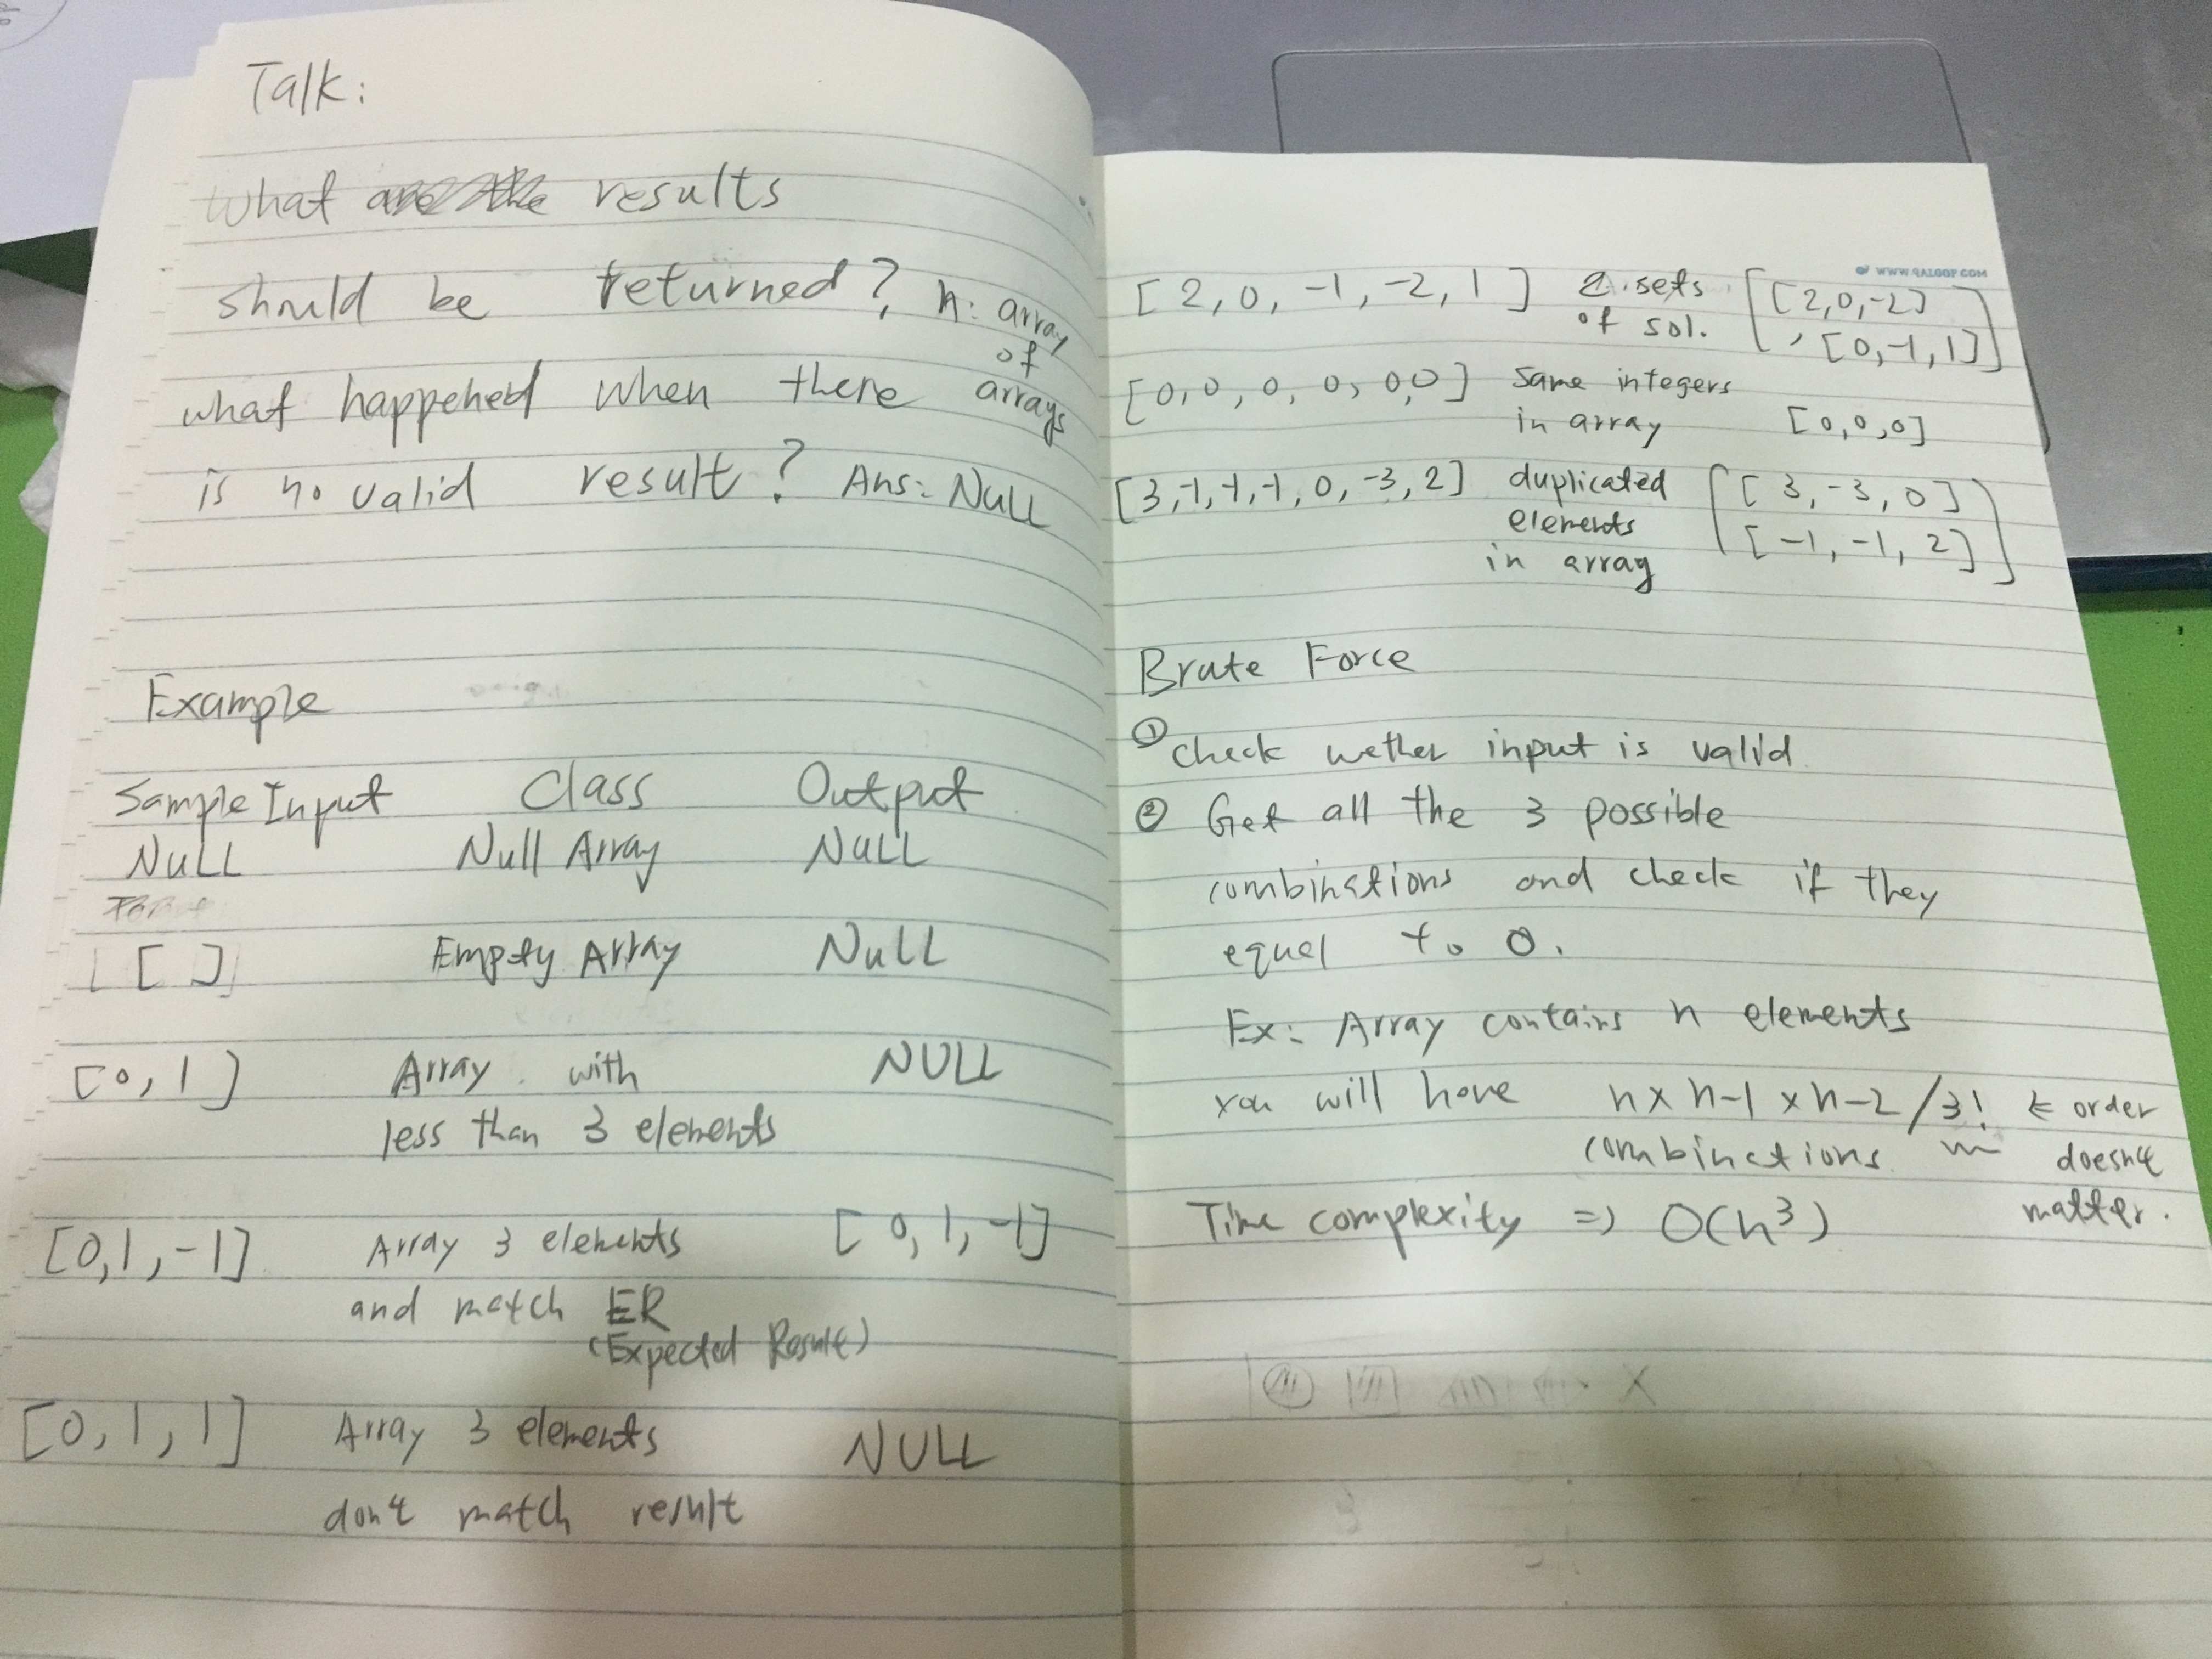 Talk:
What results
should be returned? A: array
of
arrays
what happened when there
is no valid result? Ans: NULL
Example
Sample Input Class Output
NULL Null Array NULL
[ ] Empty Array NULL
[0,1] Array with NULL
less than 3 elements
[0,1,-1] Array 3 elements [0,1,-1]
and match ER
(Expected Result)
[0,1,1] Array 3 elements NULL
don't match result
WWW.9AZOOP.COM
[2,0,-1,-2,1] 2 sets [[2,0,-2]
of sol. ,[0,-1,1]]
[0,0,0,0,0,0] same integers
in array [0,0,0]
[3,-1,-1,-1,0,-3,2] duplicated [[3,-3,0]
elements [-1,-1,2]]
in array
Brute Force
① check wether input is valid
② Get all the 3 possible
combinations and check if they
equal to 0.
Ex: Array contains n elements
you will have n x n-1 x n-2 / 3! ← order
combinations doesn't
matter.
Time complexity => O(n³)